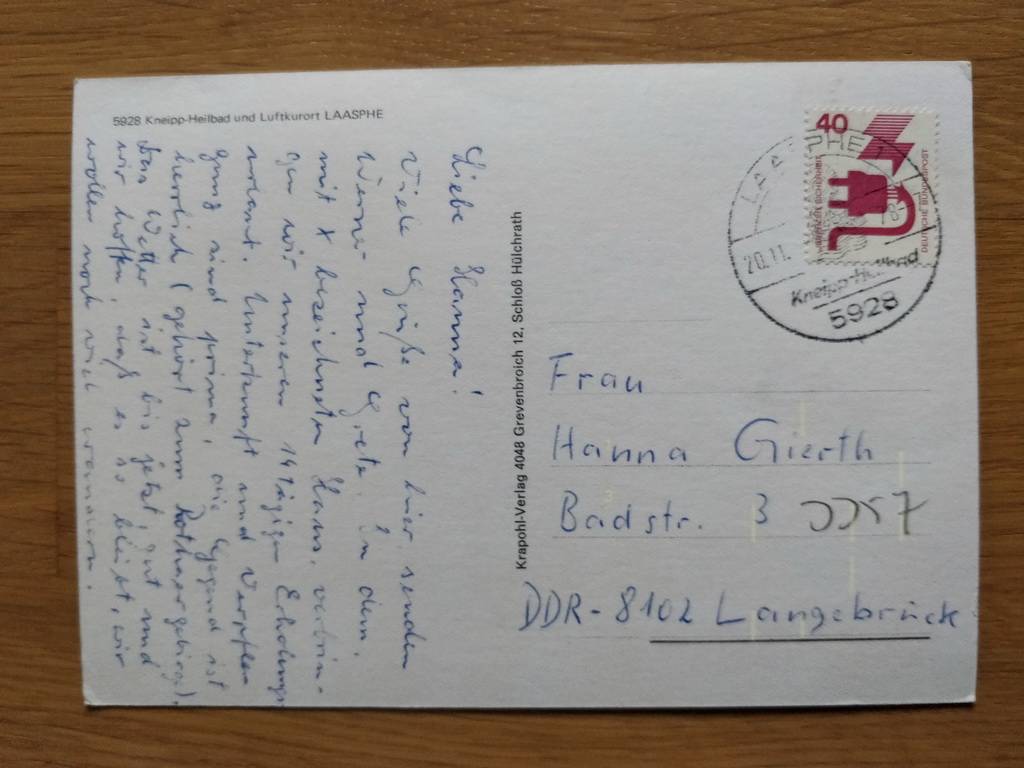 5928 Kneipp-Heilbad und Luftkurort LAASPHE
Liebe Hanna!
Viele Grüße von hier senden
Werner und Grete. In dem
mit x bezeichneten Haus, verbrin-
gen wir unseren 14 tägigen Erholungs
urlaub. Unterkunft und Verpfle
gung sind prima, die Gegend ist
herrlich (gehört zum Rothaargebirge).
Das Wetter ist bis jetzt gut und
wir hoffen, daß es so bleibt, wir
wollen noch viel wandern.
Krapohl-Verlag 4048 Grevenbroich 12, Schloß Hülchrath
40
UNFALL SICHERHEIT
DEUTSCHE BUNDESPOST
LAASPHE
20.11.
Kneipp-Heilbad
5928
Frau
Hanna Gierth
Badstr. 3
DDR-8102 Langebrück